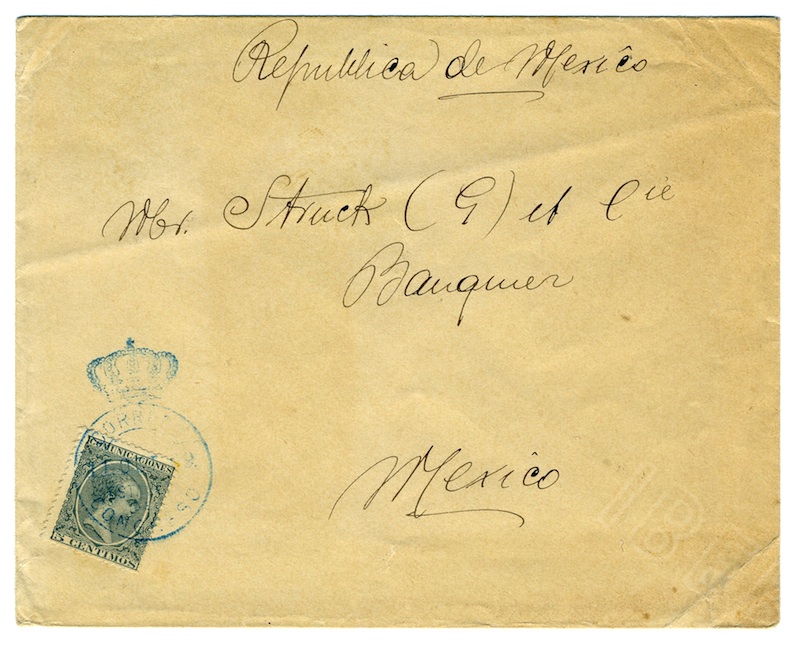 Republica de Mexico
Mr. Struck (G) et Cie
Banquier
Mexico
CORREOS
COMUNICACIONES
5 CENTIMOS